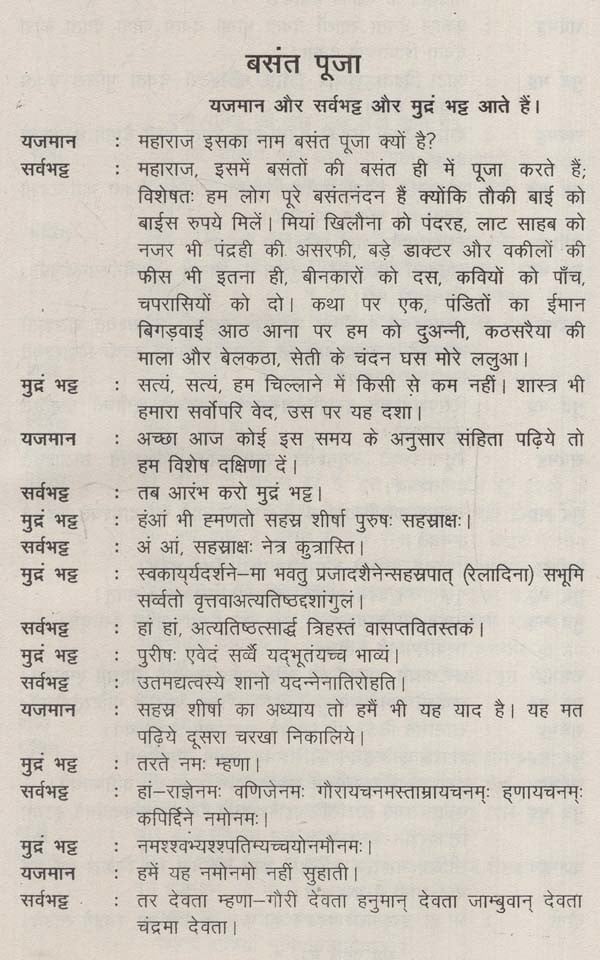 बसंत पूजा
यजमान और सर्वभट्ट और मुद्रं भट्ट आते हैं।
यजमान : महाराज इसका नाम बसंत पूजा क्यों है?
सर्वभट्ट : महाराज, इसमें बसंतों की बसंत ही में पूजा करते हैं;
विशेषतः हम लोग पूरे बसंतनंदन हैं क्योंकि तौकी बाई को
बाईस रुपये मिलें। मियां खिलौना को पंदरह, लाट साहब को
नजर भी पंद्रही की असरफी, बड़े डाक्टर और वकीलों की
फीस भी इतना ही, बीनकारों को दस, कवियों को पाँच,
चपरासियों को दो। कथा पर एक, पंडितों का ईमान
बिगड़वाई आठ आना पर हम को दुअन्नी, कठसरैया की
माला और बेलकठा, सेती के चंदन घस मोरे ललुआ।
मुद्रं भट्ट : सत्यं, सत्यं, हम चिल्लाने में किसी से कम नहीं। शास्त्र भी
हमारा सर्वोपरि वेद, उस पर यह दशा।
यजमान : अच्छा आज कोई इस समय के अनुसार संहिता पढ़िये तो
हम विशेष दक्षिणा दें।
सर्वभट्ट : तब आरंभ करो मुद्रं भट्ट।
मुद्रं भट्ट : हंआं भी ह्मणतो सहस्र शीर्षा पुरुषः सहस्राक्षः।
सर्वभट्ट : अं आं, सहस्राक्षः नेत्र कुत्रास्ति।
मुद्रं भट्ट : स्वकार्य्यदर्शने–मा भवतु प्रजादशैनेन्सहस्रपात् (रेलादिना) सभूमि
सर्व्वतो वृत्तवाअत्यतिष्ठद्दशांगुलं।
सर्वभट्ट : हां हां, अत्यतिष्ठत्सार्द्ध त्रिहस्तं वासप्तवितस्तकं।
मुद्रं भट्ट : पुरीषः एवेदं सर्व्वै यद्भूतंयच्च भाव्यं।
सर्वभट्ट : उतमद्यत्वस्ये शानो यदन्नेनातिरोहति।
यजमान : सहस्र शीर्षा का अध्याय तो हमैं भी यह याद है। यह मत
पढ़िये दूसरा चरखा निकालिये।
मुद्रं भट्ट : तरते नमः म्हणा।
सर्वभट्ट : हां–राज्ञेनमः वणिजेनमः गौरायचनमस्ताम्रायचनम्ः ह्णायचनम्ः
कपिर्द्दिने नमोनमः।
मुद्रं भट्ट : नमश्श्वभ्यश्श्पतिम्यच्चयोनमौनमः।
यजमान : हमें यह नमोनमो नहीं सुहाती।
सर्वभट्ट : तर देवता म्हणा–गौरी देवता हनुमान् देवता जाम्बुवान् देवता
चंद्रमा देवता।